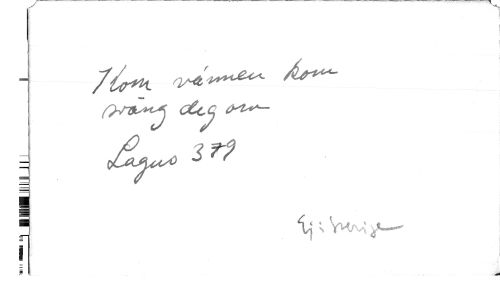 Kom vännen kom
sväng deg om
Lagus 379
Ej i Sverige